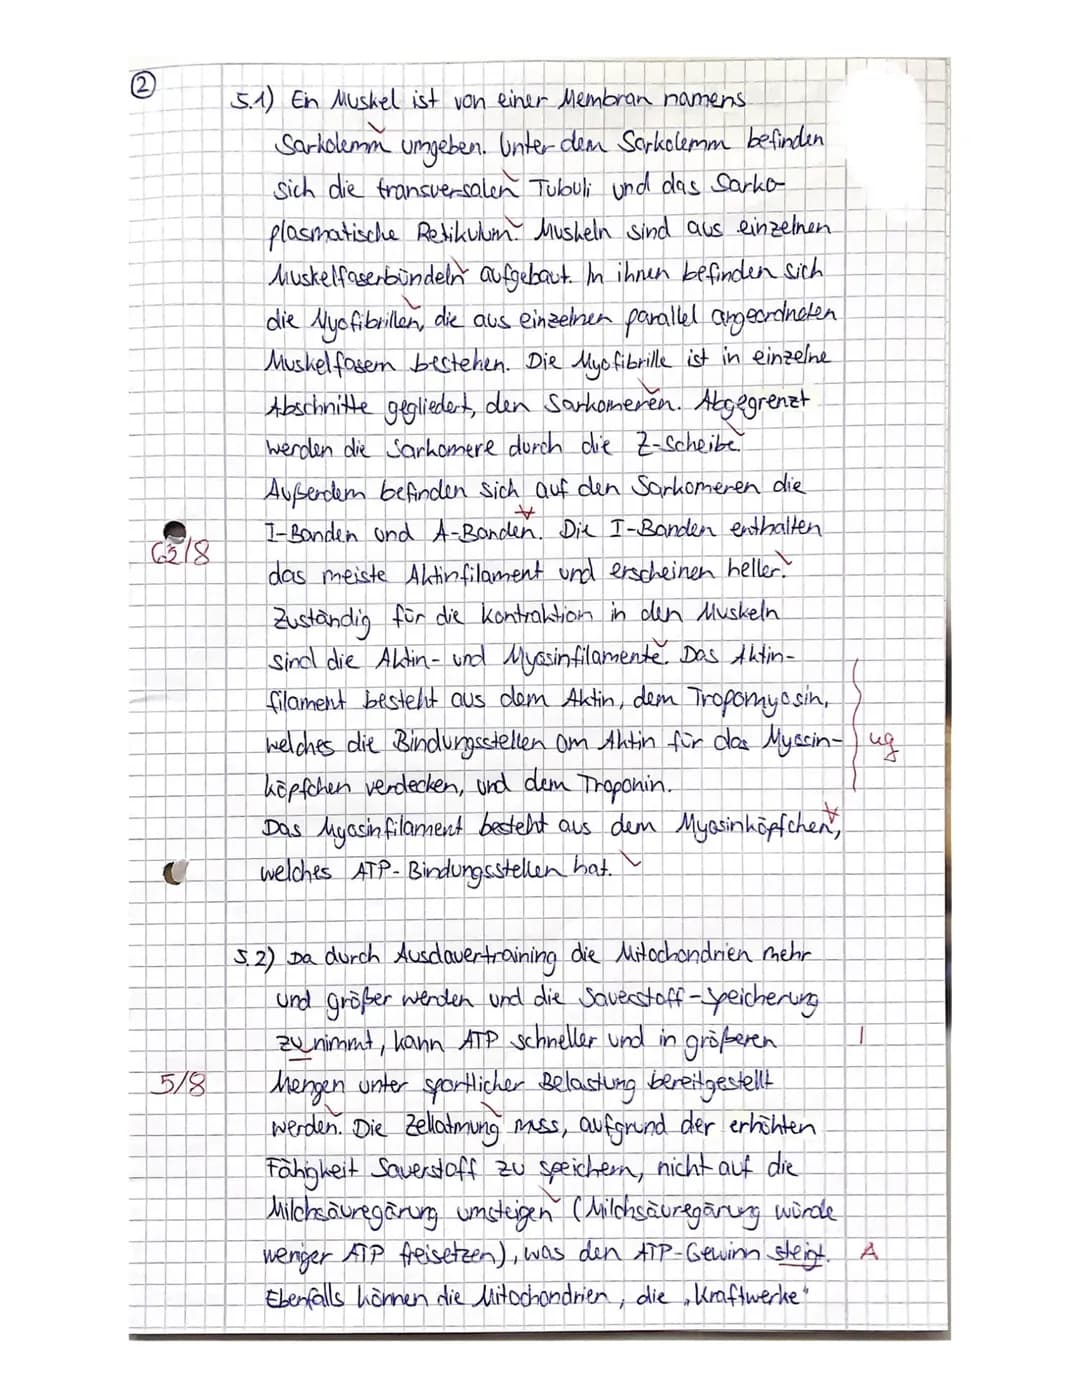 ②
5.1) Ein Muskel ist von einer Membran namens
Sarkolemm umgeben. Unter dem Sarkolemm befinden
sich die transversalen Tubuli und das Sarko-
plasmatische Retikulum. Muskeln sind aus einzelnen
Muskelfaserbündeln aufgebaut. In ihnen befinden sich
die Myofibrillen, die aus einzelnen parallel angeordneten
Muskelfasern bestehen. Die Myofibrille ist in einzelne
Abschnitte gegliedert, den Sarkomeren. Abgegrenzt
werden die Sarkomere durch die Z-Scheibe.
Außerdem befinden sich auf den Sarkomeren die
I-Banden und A-Banden. Die I-Banden enthalten
/8
das meiste Aktinfilament und erscheinen heller.
Zuständig für die Kontraktion in den Muskeln
sind die Aktin- und Myosinfilamente. Das Aktin-
filament besteht aus dem Aktin, dem Tropomyosin,
welches die Bindungsstellen am Aktin für das Myosin- ug
köpfchen verdecken, und dem Troponin.
Das Myosinfilament besteht aus dem Myosinköpfchen,
welches ATP-Bindungsstellen hat.
5.2) Da durch Ausdauertraining die Mitochondrien mehr
und größer werden und die Sauerstoff-Speicherung
zu nimmt, kann ATP schneller und in größeren |
5/8 Mengen unter sportlicher Belastung bereitgestellt
werden. Die Zellatmung muss, aufgrund der erhöhten
Fähigkeit Sauerstoff zu speichern, nicht auf die
Milchsäuregärung umsteigen (Milchsäuregärung würde
weniger ATP freisetzen), was den ATP-Gewinn steigt. A
Ebenfalls können die Mitochondrien, die „Kraftwerke"